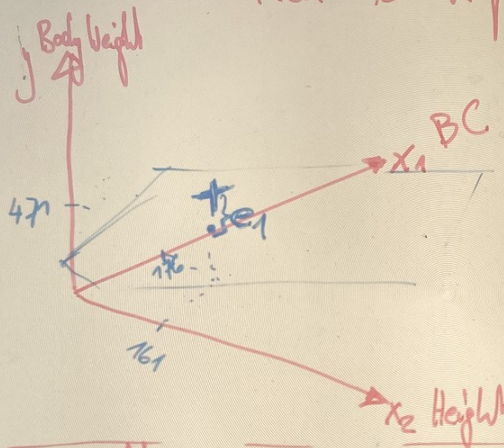 y Body Weight
BC
x₁
471
e₁
176
161
x₂ Height